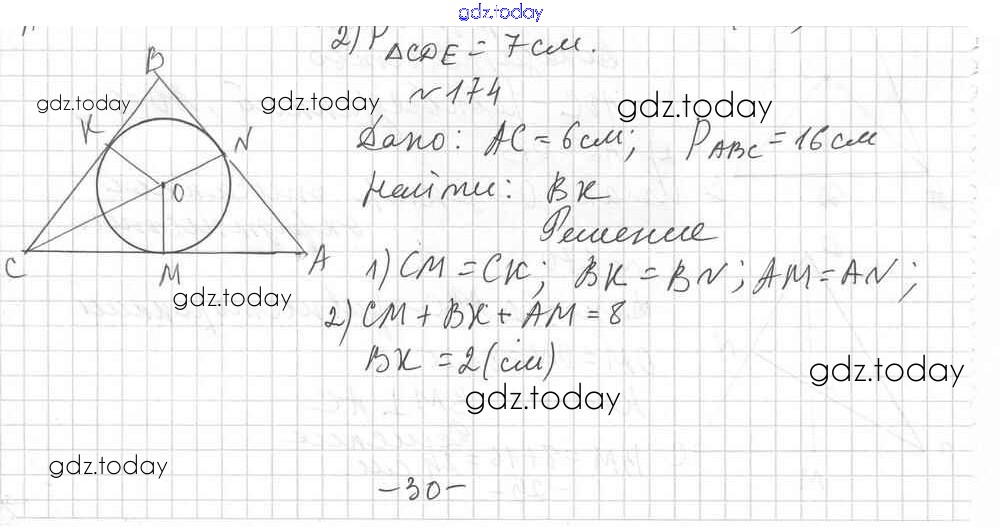 gdz.today
2) P△CDE = 7 см.
№174
gdz.today gdz.today gdz.today
Дано: AC = 6 см; PABC = 16 см
Найти: BK
Решение
1) CM = CK; BK = BN; AM = AN;
2) CM + BK + AM = 8
BK = 2 (см)
B
K
N
O
C
M
A
gdz.today
gdz.today
gdz.today
gdz.today
-30-